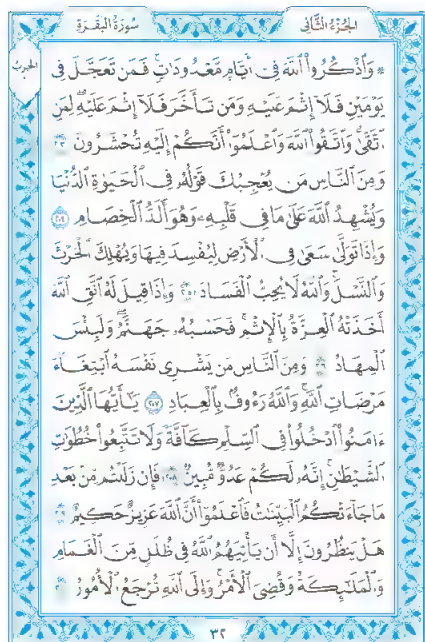 الجزء الثاني
سورة البقرة
الحزب
۞ وَاذْكُرُوا اللَّهَ فِي أَيَّامٍ مَّعْدُودَاتٍ فَمَن تَعَجَّلَ فِي
يَوْمَيْنِ فَلَا إِثْمَ عَلَيْهِ وَمَن تَأَخَّرَ فَلَا إِثْمَ عَلَيْهِ لِمَنِ
اتَّقَىٰ وَاتَّقُوا اللَّهَ وَاعْلَمُوا أَنَّكُمْ إِلَيْهِ تُحْشَرُونَ ٢٠٣
وَمِنَ النَّاسِ مَن يُعْجِبُكَ قَوْلُهُ فِي الْحَيَوٰةِ الدُّنْيَا
وَيُشْهِدُ اللَّهَ عَلَىٰ مَا فِي قَلْبِهِ وَهُوَ أَلَدُّ الْخِصَامِ ٢٠٤
وَإِذَا تَوَلَّىٰ سَعَىٰ فِي الْأَرْضِ لِيُفْسِدَ فِيهَا وَيُهْلِكَ الْحَرْثَ
وَالنَّسْلَ وَاللَّهُ لَا يُحِبُّ الْفَسَادَ ٢٠٥ وَإِذَا قِيلَ لَهُ اتَّقِ اللَّهَ
أَخَذَتْهُ الْعِزَّةُ بِالْإِثْمِ فَحَسْبُهُ جَهَنَّمُ وَلَبِئْسَ
الْمِهَادُ ٢٠٦ وَمِنَ النَّاسِ مَن يَشْرِي نَفْسَهُ ابْتِغَاءَ
مَرْضَاتِ اللَّهِ وَاللَّهُ رَءُوفٌ بِالْعِبَادِ ٢٠٧ يَٰأَيُّهَا الَّذِينَ
ءَامَنُوا ادْخُلُوا فِي السِّلْمِ كَافَّةً وَلَا تَتَّبِعُوا خُطُوَٰتِ
الشَّيْطَٰنِ إِنَّهُ لَكُمْ عَدُوٌّ مُّبِينٌ ٢٠٨ فَإِن زَلَلْتُم مِّن بَعْدِ
مَا جَاءَتْكُمُ الْبَيِّنَٰتُ فَاعْلَمُوا أَنَّ اللَّهَ عَزِيزٌ حَكِيمٌ ٢٠٩
هَلْ يَنظُرُونَ إِلَّا أَن يَأْتِيَهُمُ اللَّهُ فِي ظُلَلٍ مِّنَ الْغَمَامِ
وَالْمَلَٰئِكَةُ وَقُضِيَ الْأَمْرُ وَإِلَى اللَّهِ تُرْجَعُ الْأُمُورُ ٢١٠
٣٢